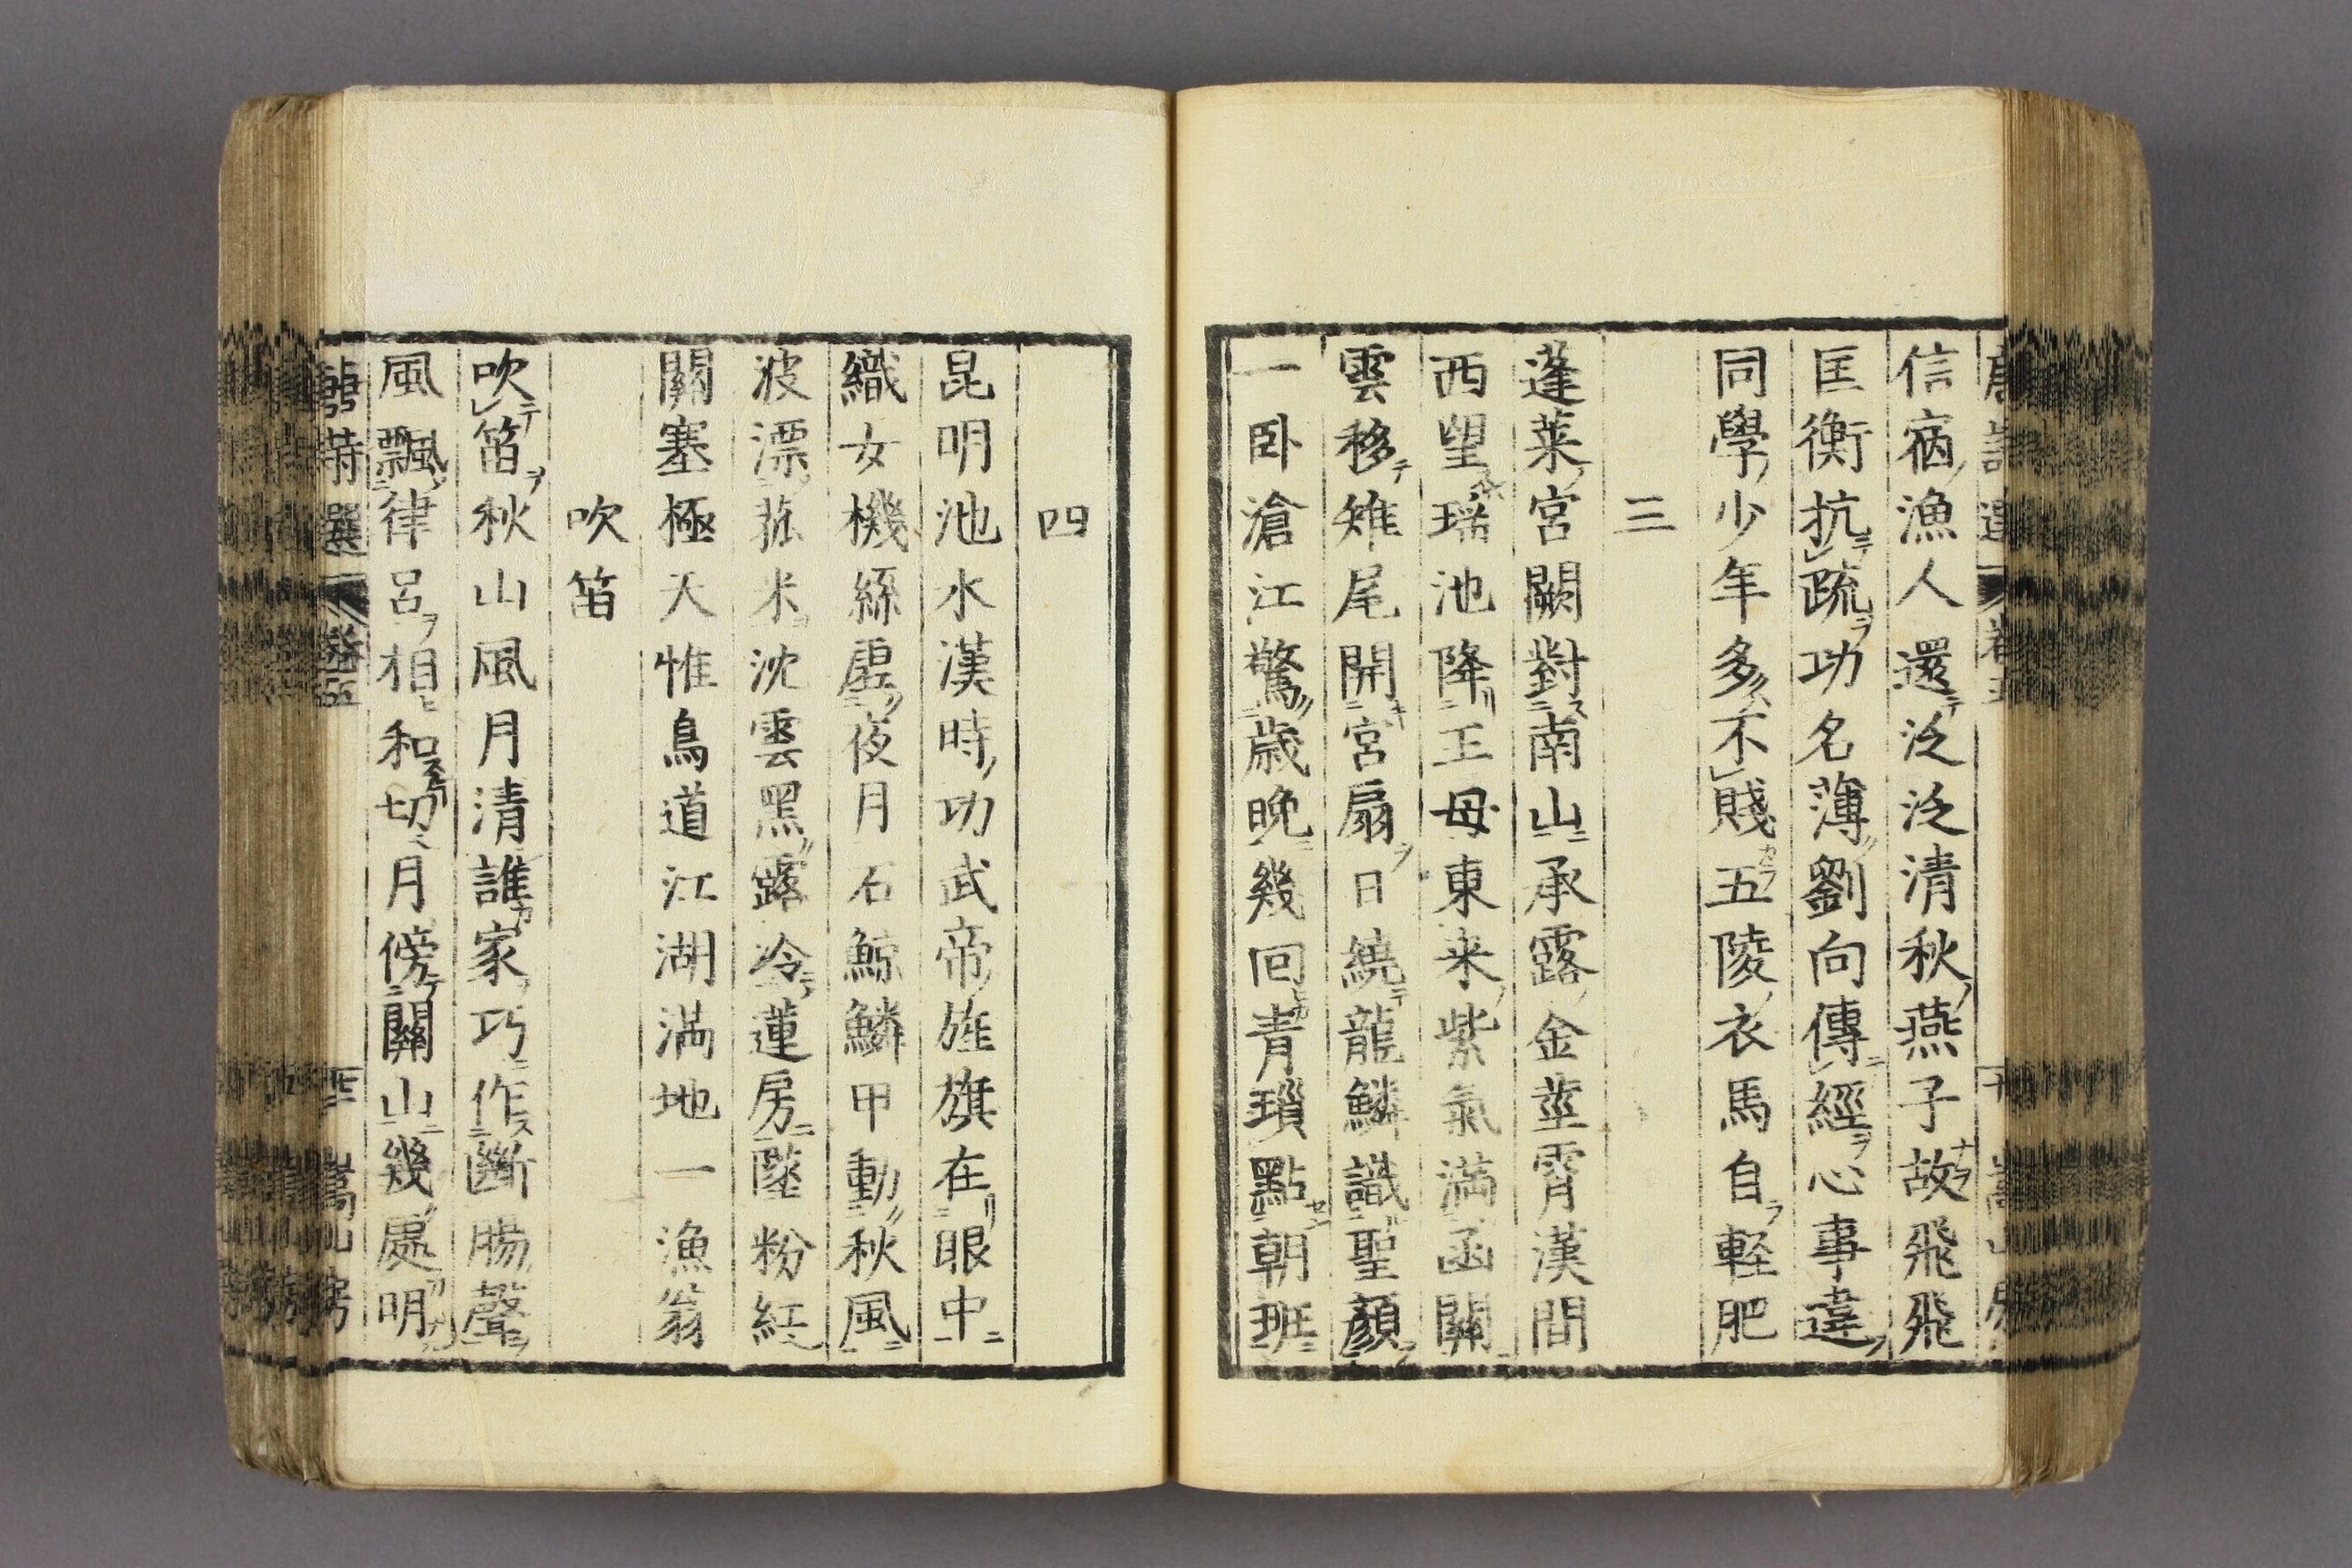 信宿漁人還泛泛清秋燕子故飛飛
匡衡抗疏功名薄劉向傳經心事違
同學少年多不賤五陵衣馬自輕肥
三
蓬萊宮闕對南山承露金莖霄漢間
西望瑶池降王母東来紫氣滿函關
雲移雉尾開宮扇日繞龍鱗識聖顏
一卧滄江驚歳晚幾回青瑣點朝班
四
昆明池水漢時功武帝旌旗在眼中
織女機絲虛夜月石鯨鱗甲動秋風
波漂菰米沈雲黑露冷蓮房墜粉紅
關塞極天惟鳥道江湖滿地一漁翁
吹笛
吹笛秋山風月清誰家巧作斷腸聲
風飄律呂相和切月傍關山幾處明
唐詩選 卷五 嵩山房